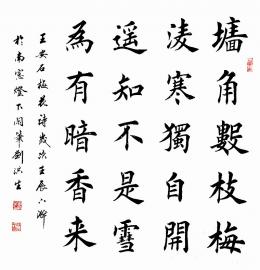 墙角數枝梅
淩寒獨自開
遥知不是雪
為有暗香来
王安石梅花詩歲次壬辰八月
於南窓燈下閑筆劉洪生